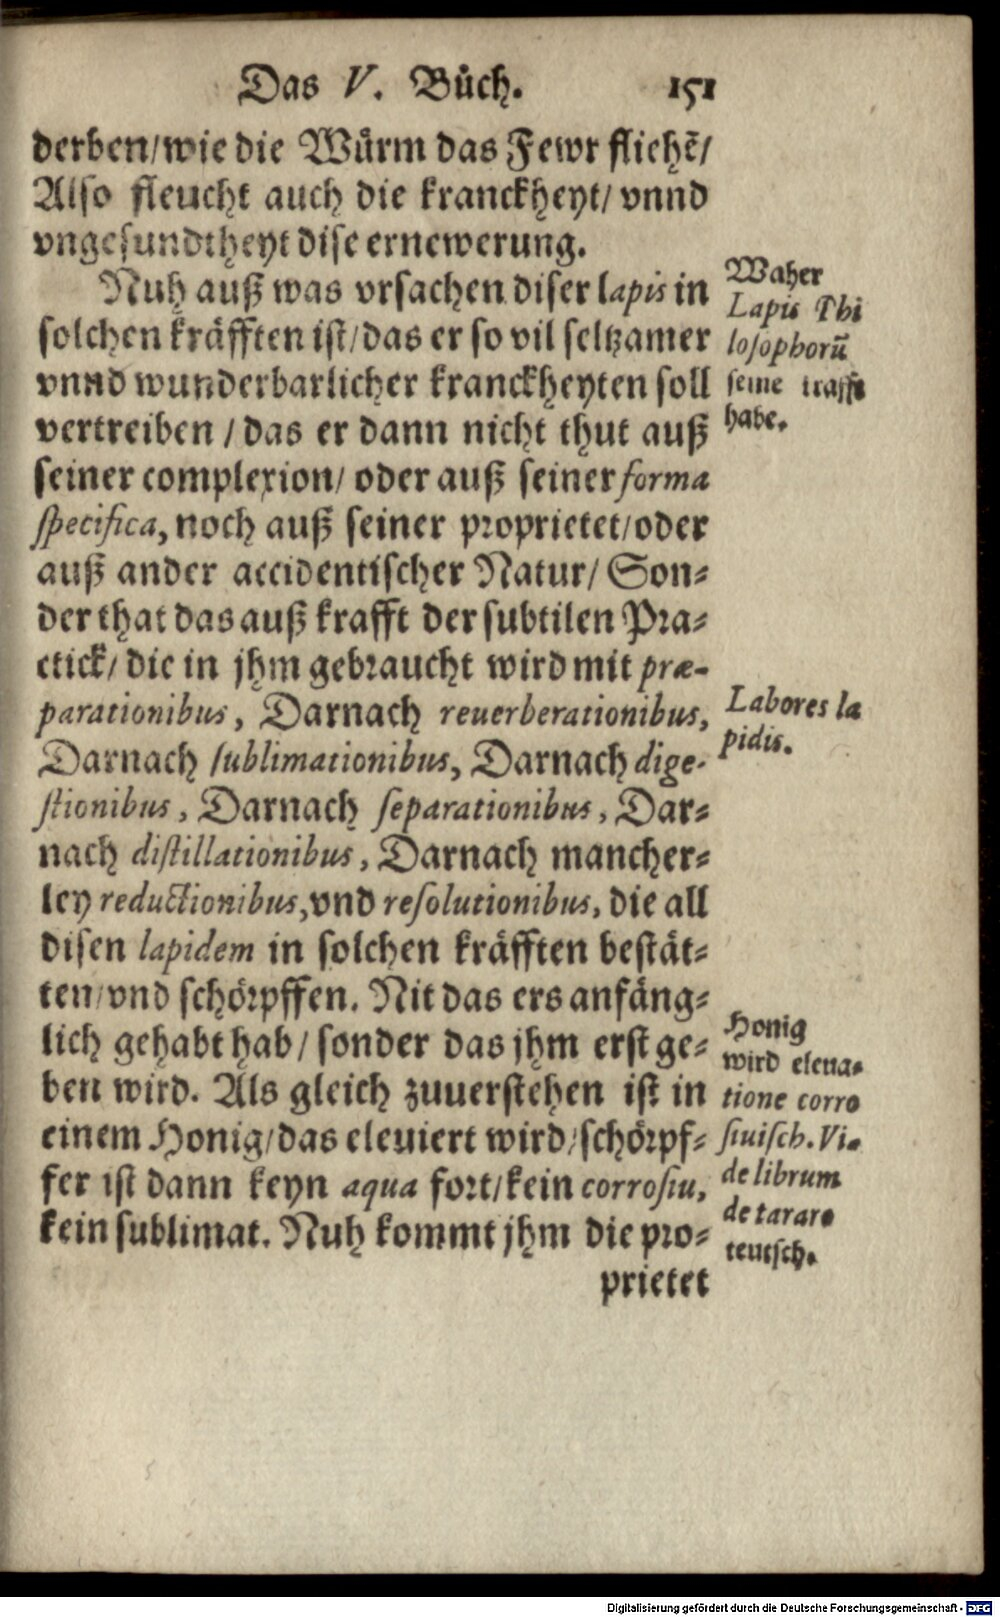 Das V. Bůch. 151
derben/wie die Wůrm das Fewr fliehẽ/
Also fleucht auch die kranckheyt/ vnnd
vngesundtheyt dise ernewerung.
Nuh auß was vrsachen diser lapis in
solchen kräfften ist/das er so vil seltzamer
vnnd wunderbarlicher kranckheyten soll
vertreiben / das er dann nicht thut auß
seiner complexion/ oder auß seiner forma
specifica, noch auß seiner proprietet/oder
auß ander accidentischer Natur/ Son-
der that das auß krafft der subtilen Pra-
ctick/ die in jhm gebraucht wird mit præ-
parationibus, Darnach reuerberationibus,
Darnach sublimationibus, Darnach dige-
stionibus, Darnach separationibus, Dar-
nach distillationibus, Darnach mancher-
ley reductionibus,vnd resolutionibus, die all
disen lapidem in solchen kräfften bestät-
ten/vnd schörpffen. Nit das ers anfäng-
lich gehabt hab/ sonder das jhm erst ge-
ben wird. Als gleich zuuerstehen ist in
einem Honig/das eleuiert wird/schörpf-
fer ist dann keyn aqua fort/kein corrosiu,
kein sublimat. Nuh kommt jhm die pro-
prietet
Waher
Lapis Phi
losophorũ
seine
habe.
Labores la
pidis.
Honig
wird eleua-
tione corro
siuisch. Vi-
de librum
de tartaro
teutsch.
Digitalisierung gefördert durch die Deutsche Forschungsgemeinschaft - DFG